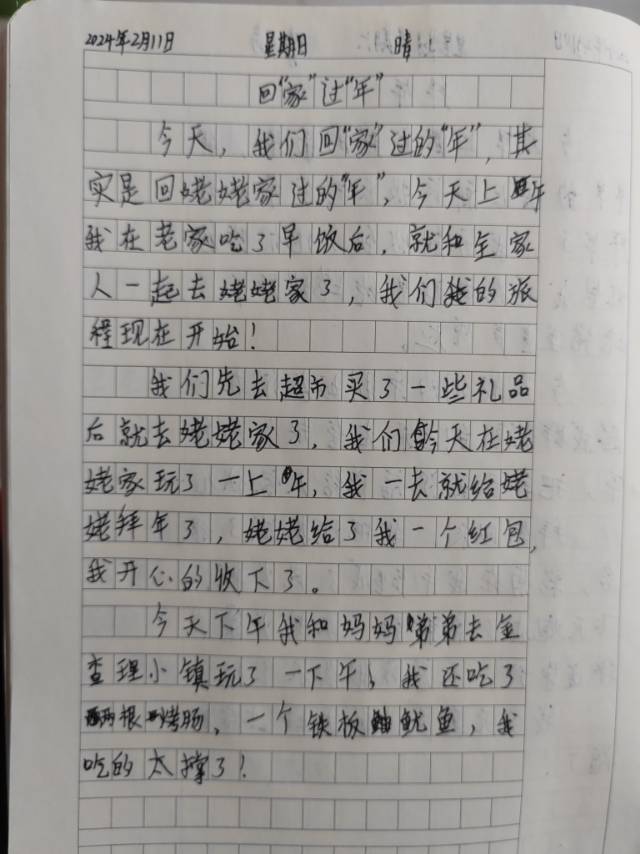 2024年2月11日 星期日 晴
回“家”过“年”
今天，我们回“家”过的“年”，其
实是回姥姥家过的“年”，今天上午
我在老家吃了早饭后，就和全家
人一起去姥姥家了，我们的旅
程现在开始！
我们先去超市买了一些礼品
后就去姥姥家了，我们今天在姥
姥家玩了一上午，我一去就给姥
姥拜年了，姥姥给了我一个红包，
我开心的收下了。
今天下午我和妈妈弟弟去金
查理小镇玩了一下午，我还吃了
两根烤肠，一个铁板鱿鱼，我
吃的太撑了！